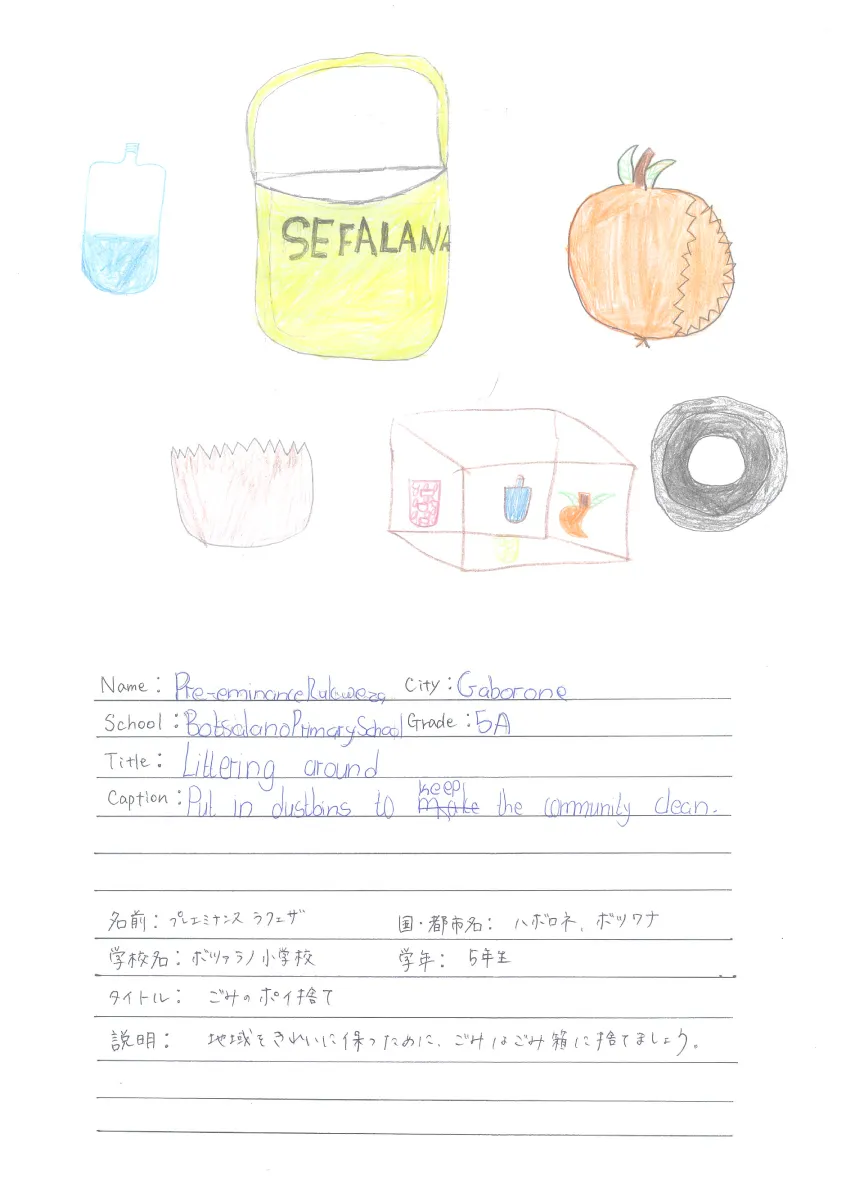 SEFALANA
Name: Pre-eminance Rukweza City: Gaborone
School: Botsalano Primary School Grade: 5A
Title: Littering around
Caption: Put in dustbins to keep make the community clean.
名前: プレエミナンス ラクェザ 国・都市名: ハボロネ, ボツワナ
学校名: ボツァラノ小学校 学年: 5年生
タイトル: ごみのポイ捨て
説明: 地域をきれいに保つために、ごみはごみ箱に捨てましょう。